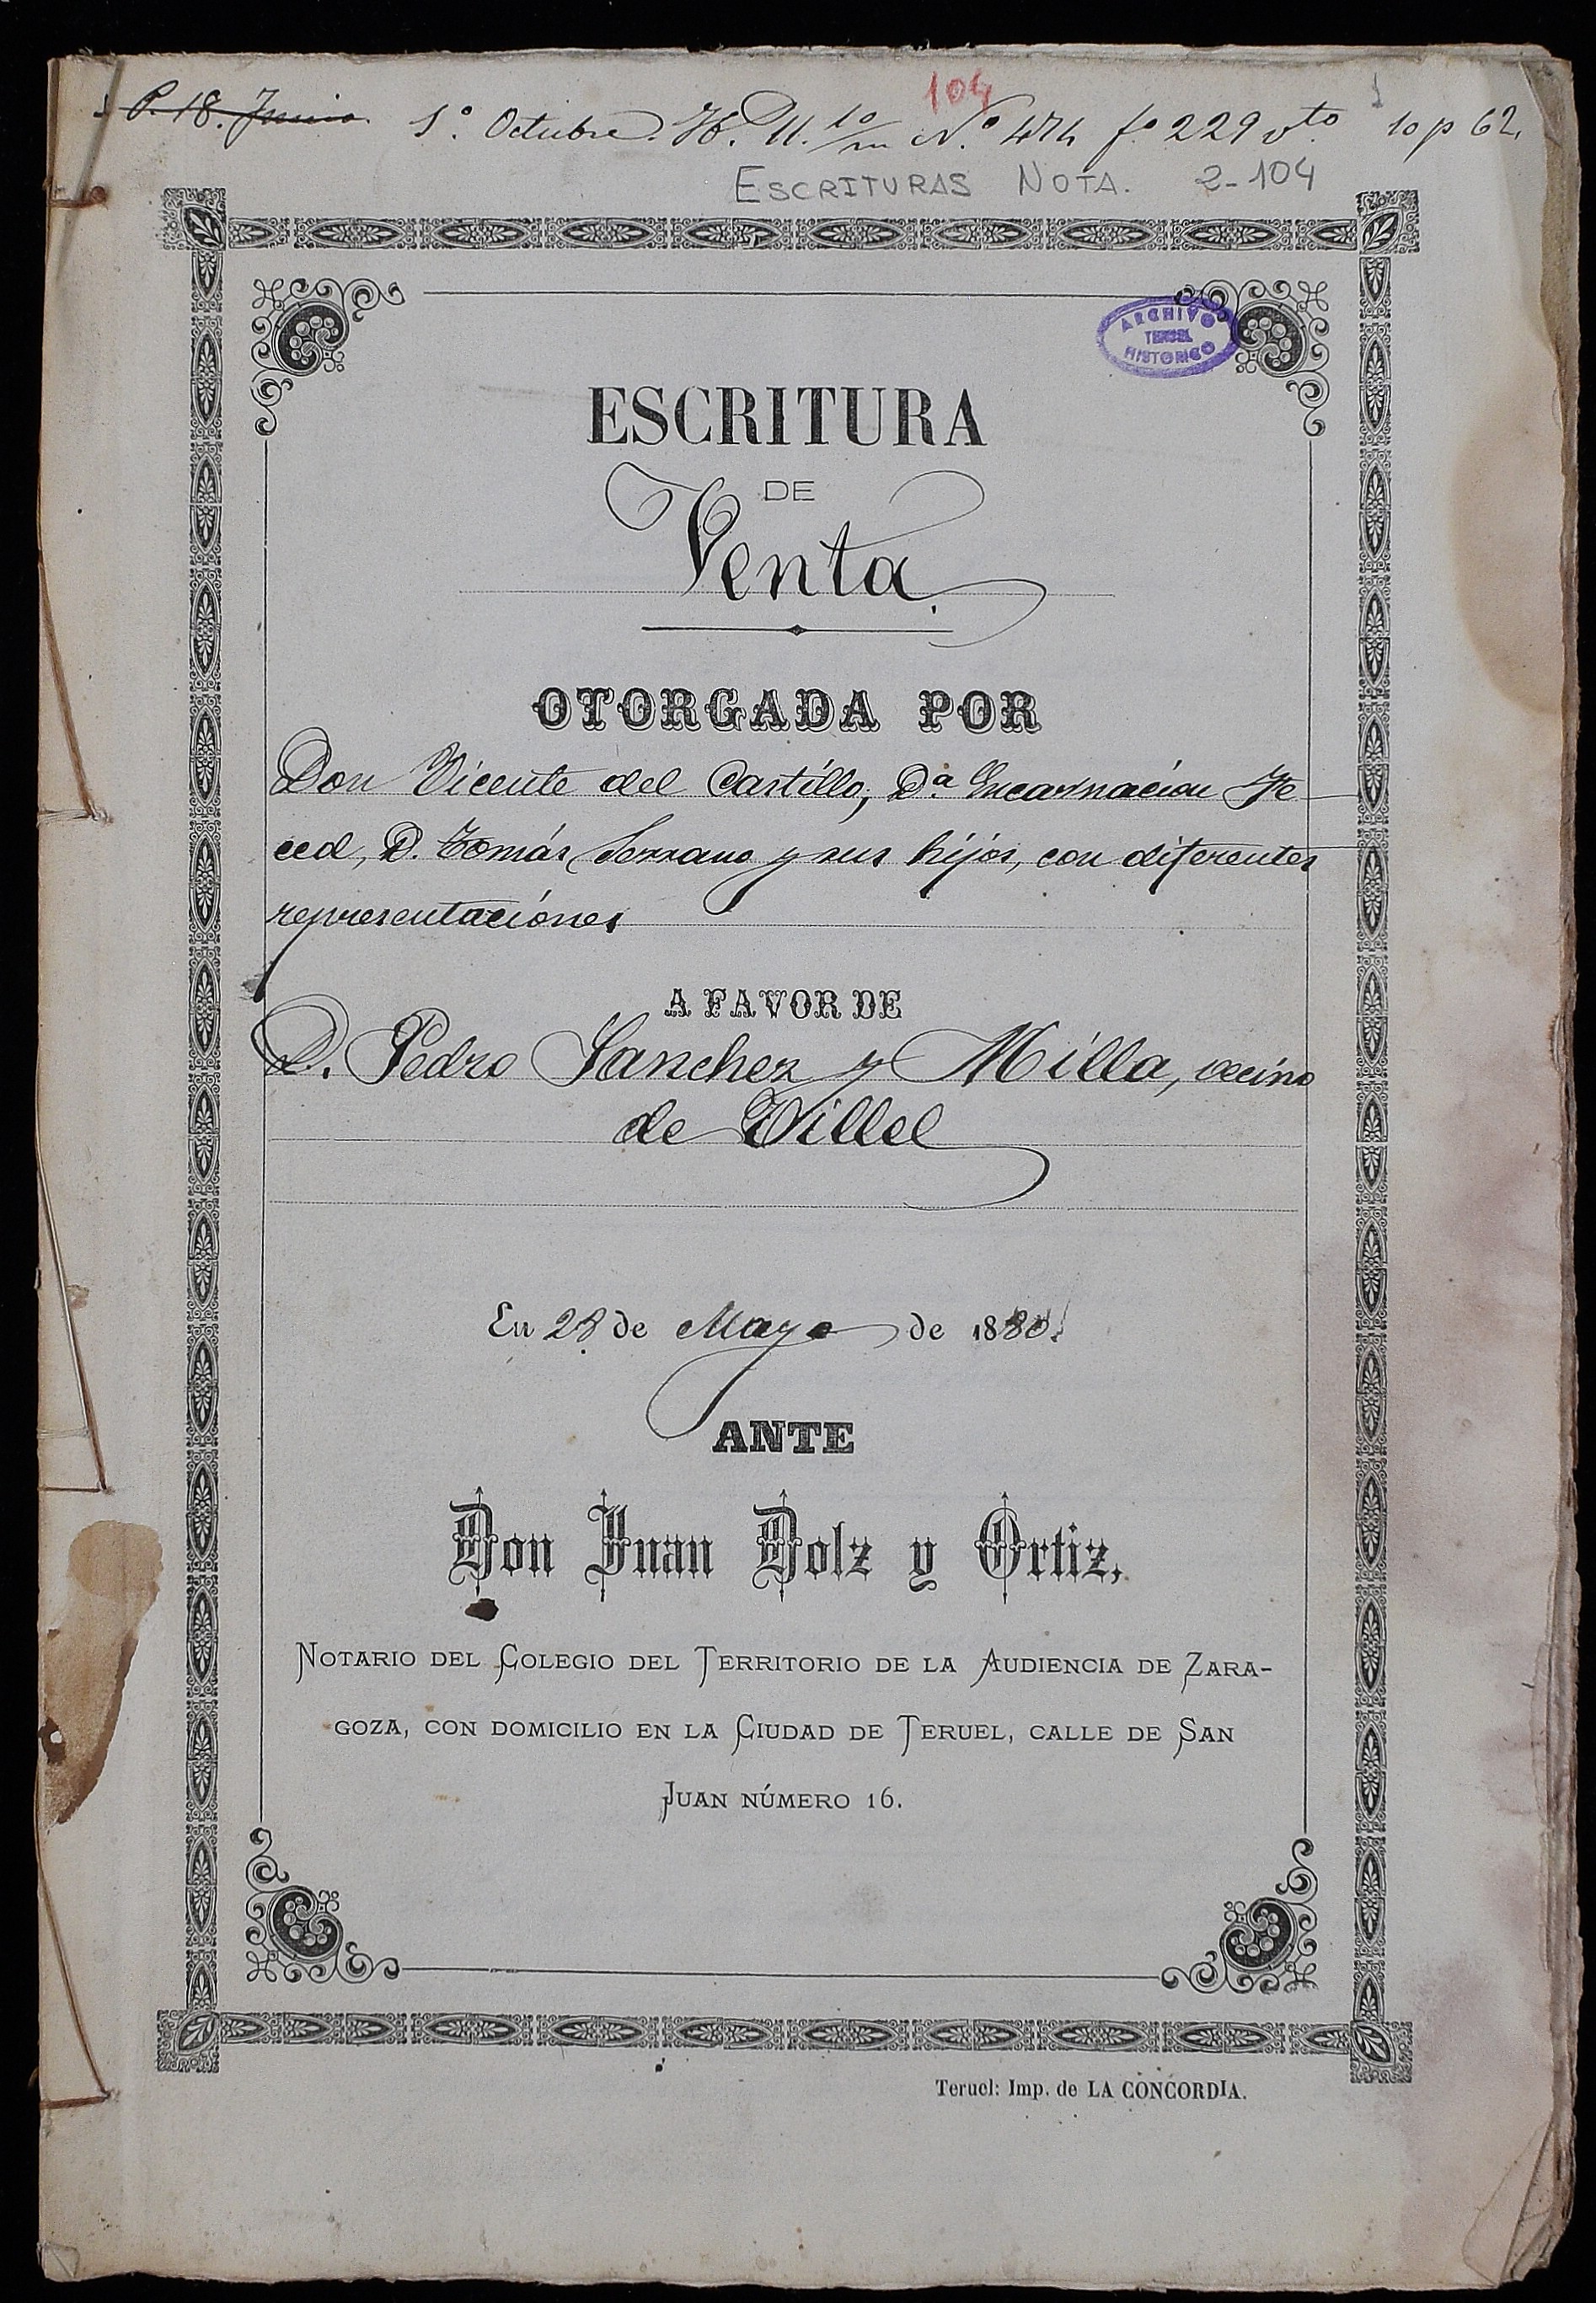 104
P. 18. Junio. 5º Octubre. Nº 474 fº 229 vto 10 p 62,
ESCRITURAS NOTA. 2-104
ARCHIVO
TERUEL
HISTORICO
ESCRITURA
DE
Venta
OTORGADA POR
Don Vicente del Castillo, D.ª Encarnación Fe
ced, D. Tomás Serrano y sus hijos, con diferentes
representaciónes
A FAVOR DE
D. Pedro Sanchez y Milla, vecino
de Villel
En 28 de Mayo de 1880.
ANTE
Don Juan Dolz y Ortiz,
NOTARIO DEL COLEGIO DEL TERRITORIO DE LA AUDIENCIA DE ZARA-
GOZA, CON DOMICILIO EN LA CIUDAD DE TERUEL, CALLE DE SAN
JUAN NÚMERO 16.
Teruel: Imp. de LA CONCORDIA.